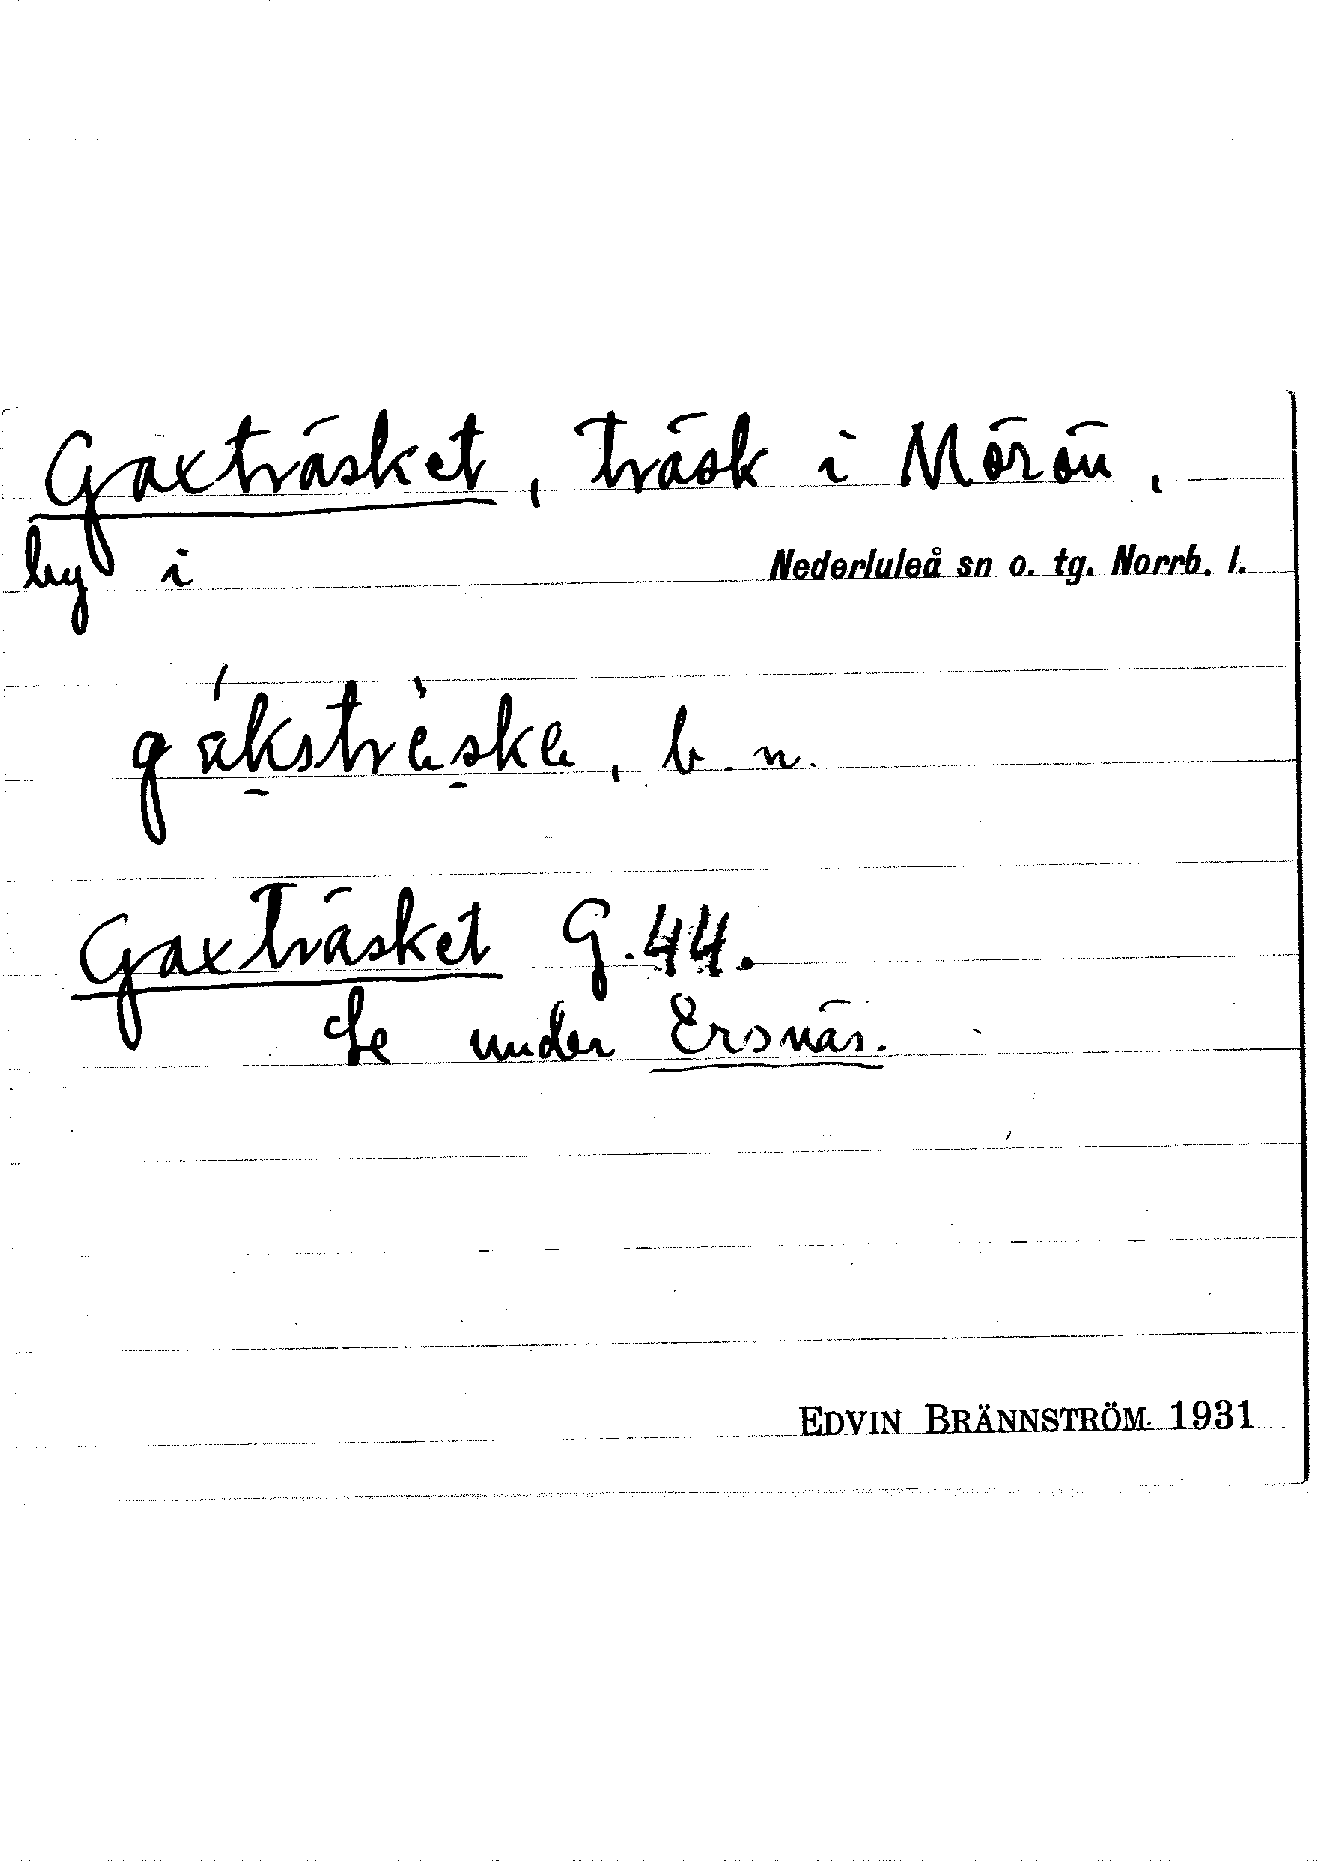 Gaxträsket, träsk i Mörön,
by i Nederluleå sn o. tg. Norrb. l.
gáksträ̀ske, b. n.
Gaxträsket G.44.
Se under Ersnäs.
EDVIN BRÄNNSTRÖM 1931